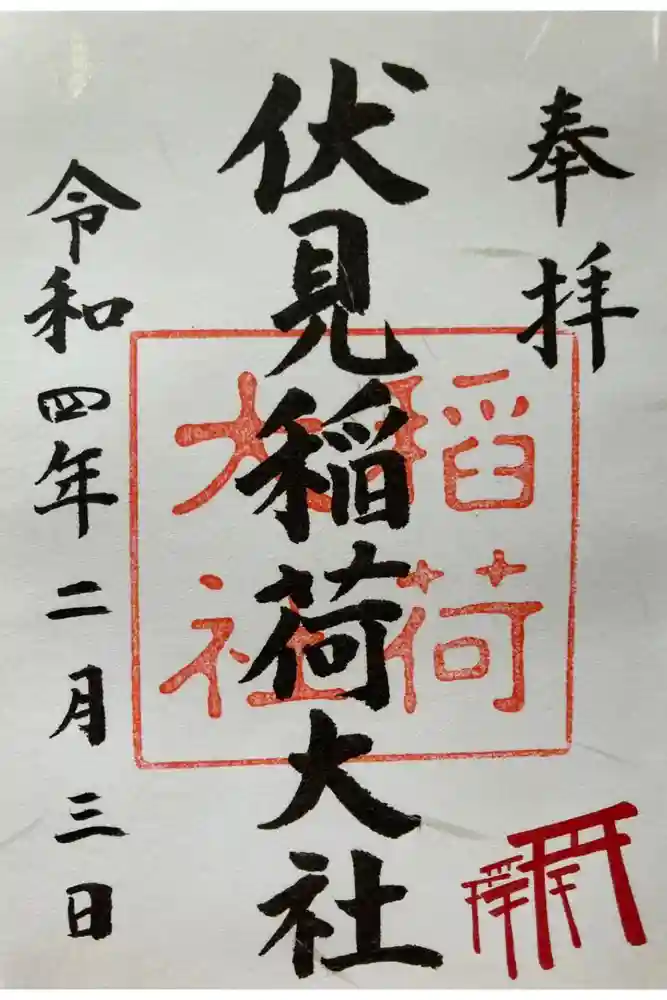 奉拝
伏見稲荷大社
稲荷
大社
令和四年二月三日